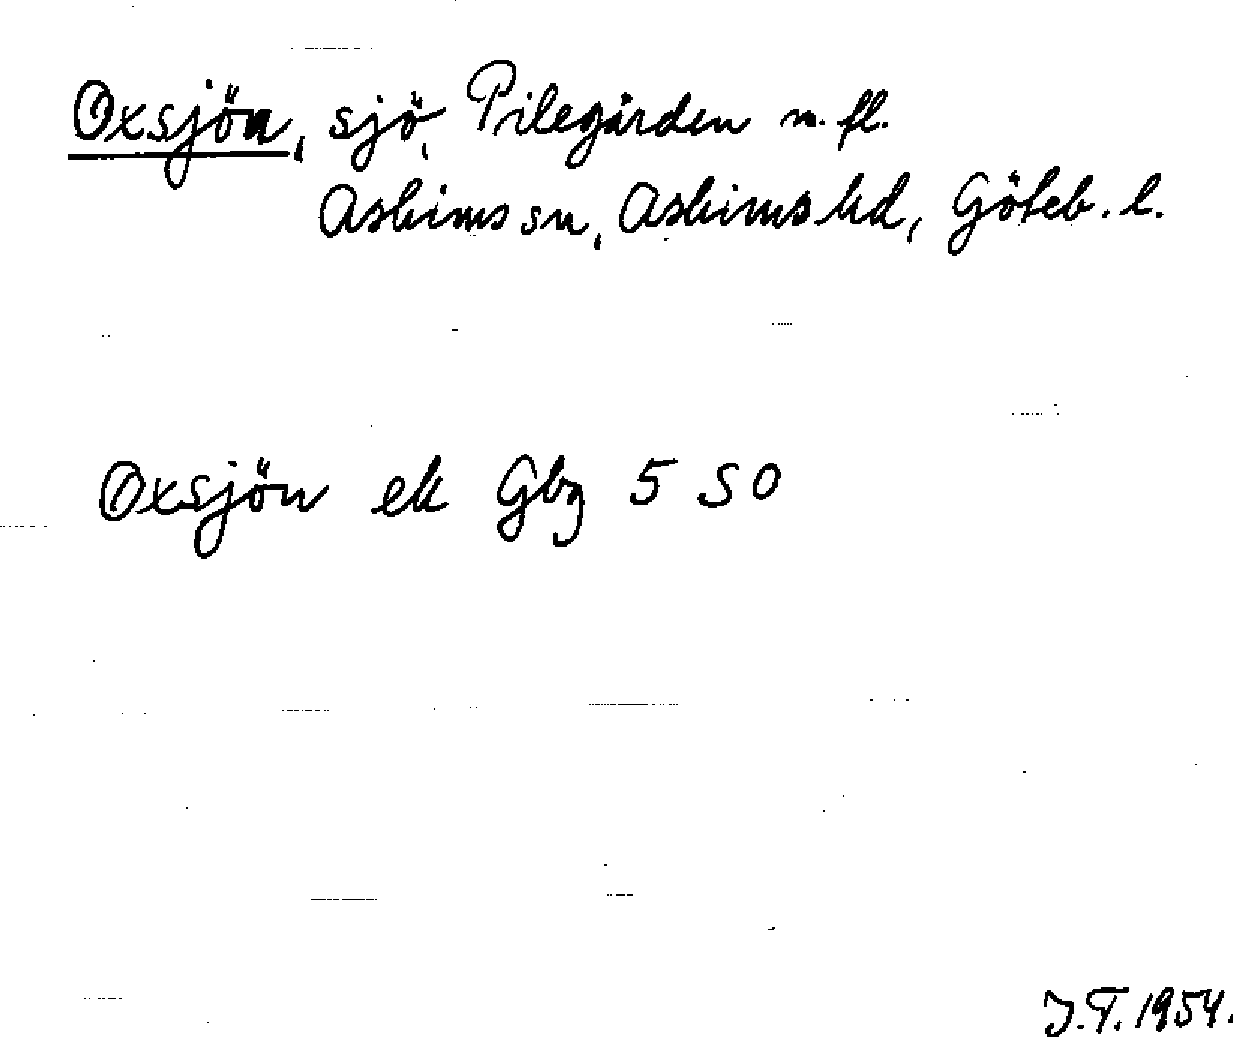 Oxsjön, sjö, Pilegården m. fl.
Askims sn, Askims hd, Göteb. l.
Oxsjön ek Gbg 5 SO
J.T. 1954.